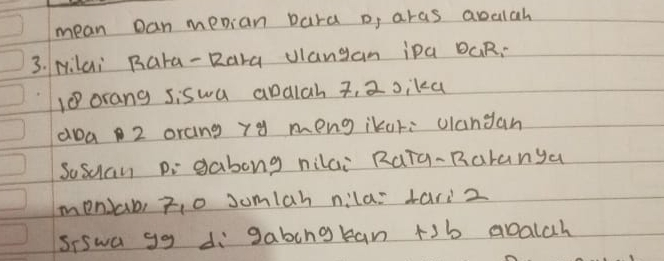 mean Dan median Data Di atas adalah
3. Nilai Rata-Rata Ulangan ipa Dari
18 orang siswa adalah 7,2 Jika
ada 2 orang yg mengikuti ulangan
Susulan Di gabong nilai Rata-Ratanya
menjadi 7,0 Jumlah nilai dari 2
siswa yg di gabungkan tsb adalah